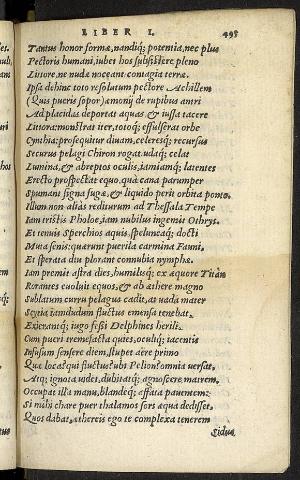 LIBER I. 495
Tantus honor formæ, nandiq; potentia, nec plus
Pectoris humani, iubet hos subsistere pleno
Littore, ne nudæ noceant contagia terræ.
Ipsa dehinc toto resolutum pectore Achillem
(Quis pueris sopor) æmonij de rupibus antri
Ad placidas deportat aquas & iussa tacere
Littora: monstrat iter, totoq; effulserat orbe
Cynthia: prosequitur diuam, celeresq; recursus
Securus pelagi Chiron rogat: udaq; celat
Lumina, & abreptos oculis, iamiamq; latentes
Erecto prospectat equo, quà cana parumper
Spumant signa fugæ, & liquido perit orbita ponto.
Illum non alias rediturum ad Thessala Tempe
Iam tristis Pholoe, iam nubilus ingemit Othrys,
Et tenuis Sperchios aquis, speluncaq; docti
Muta senis: quærunt puerilia carmina Fauni,
Et sperata diu plorant connubia nymphæ.
Iam premit astra dies, humiliq; ex æquore Titan
Rorantes euoluit equos, & ab æthere magno
Sublatum curru pelagus cadit, at uada mater
Scyria iamdudum fluctus emensa tenebat.
Exierantq; iugo fessi Delphines herili.
Cum pueri tremefacta quies, oculiq; iacentis
Infusum sensere diem, stupet aere primo
Quæ loca? qui fluctus? ubi Pelion? omnia uersat,
Atq; ignota uidet, dubitatq; agnoscere matrem.
Occupat illa manu, blandeq; affata pauentem:
Si mihi chare puer thalamos sors æqua dedisset,
Quos dabat, æthereis ego te complexa tenerem
Sidus